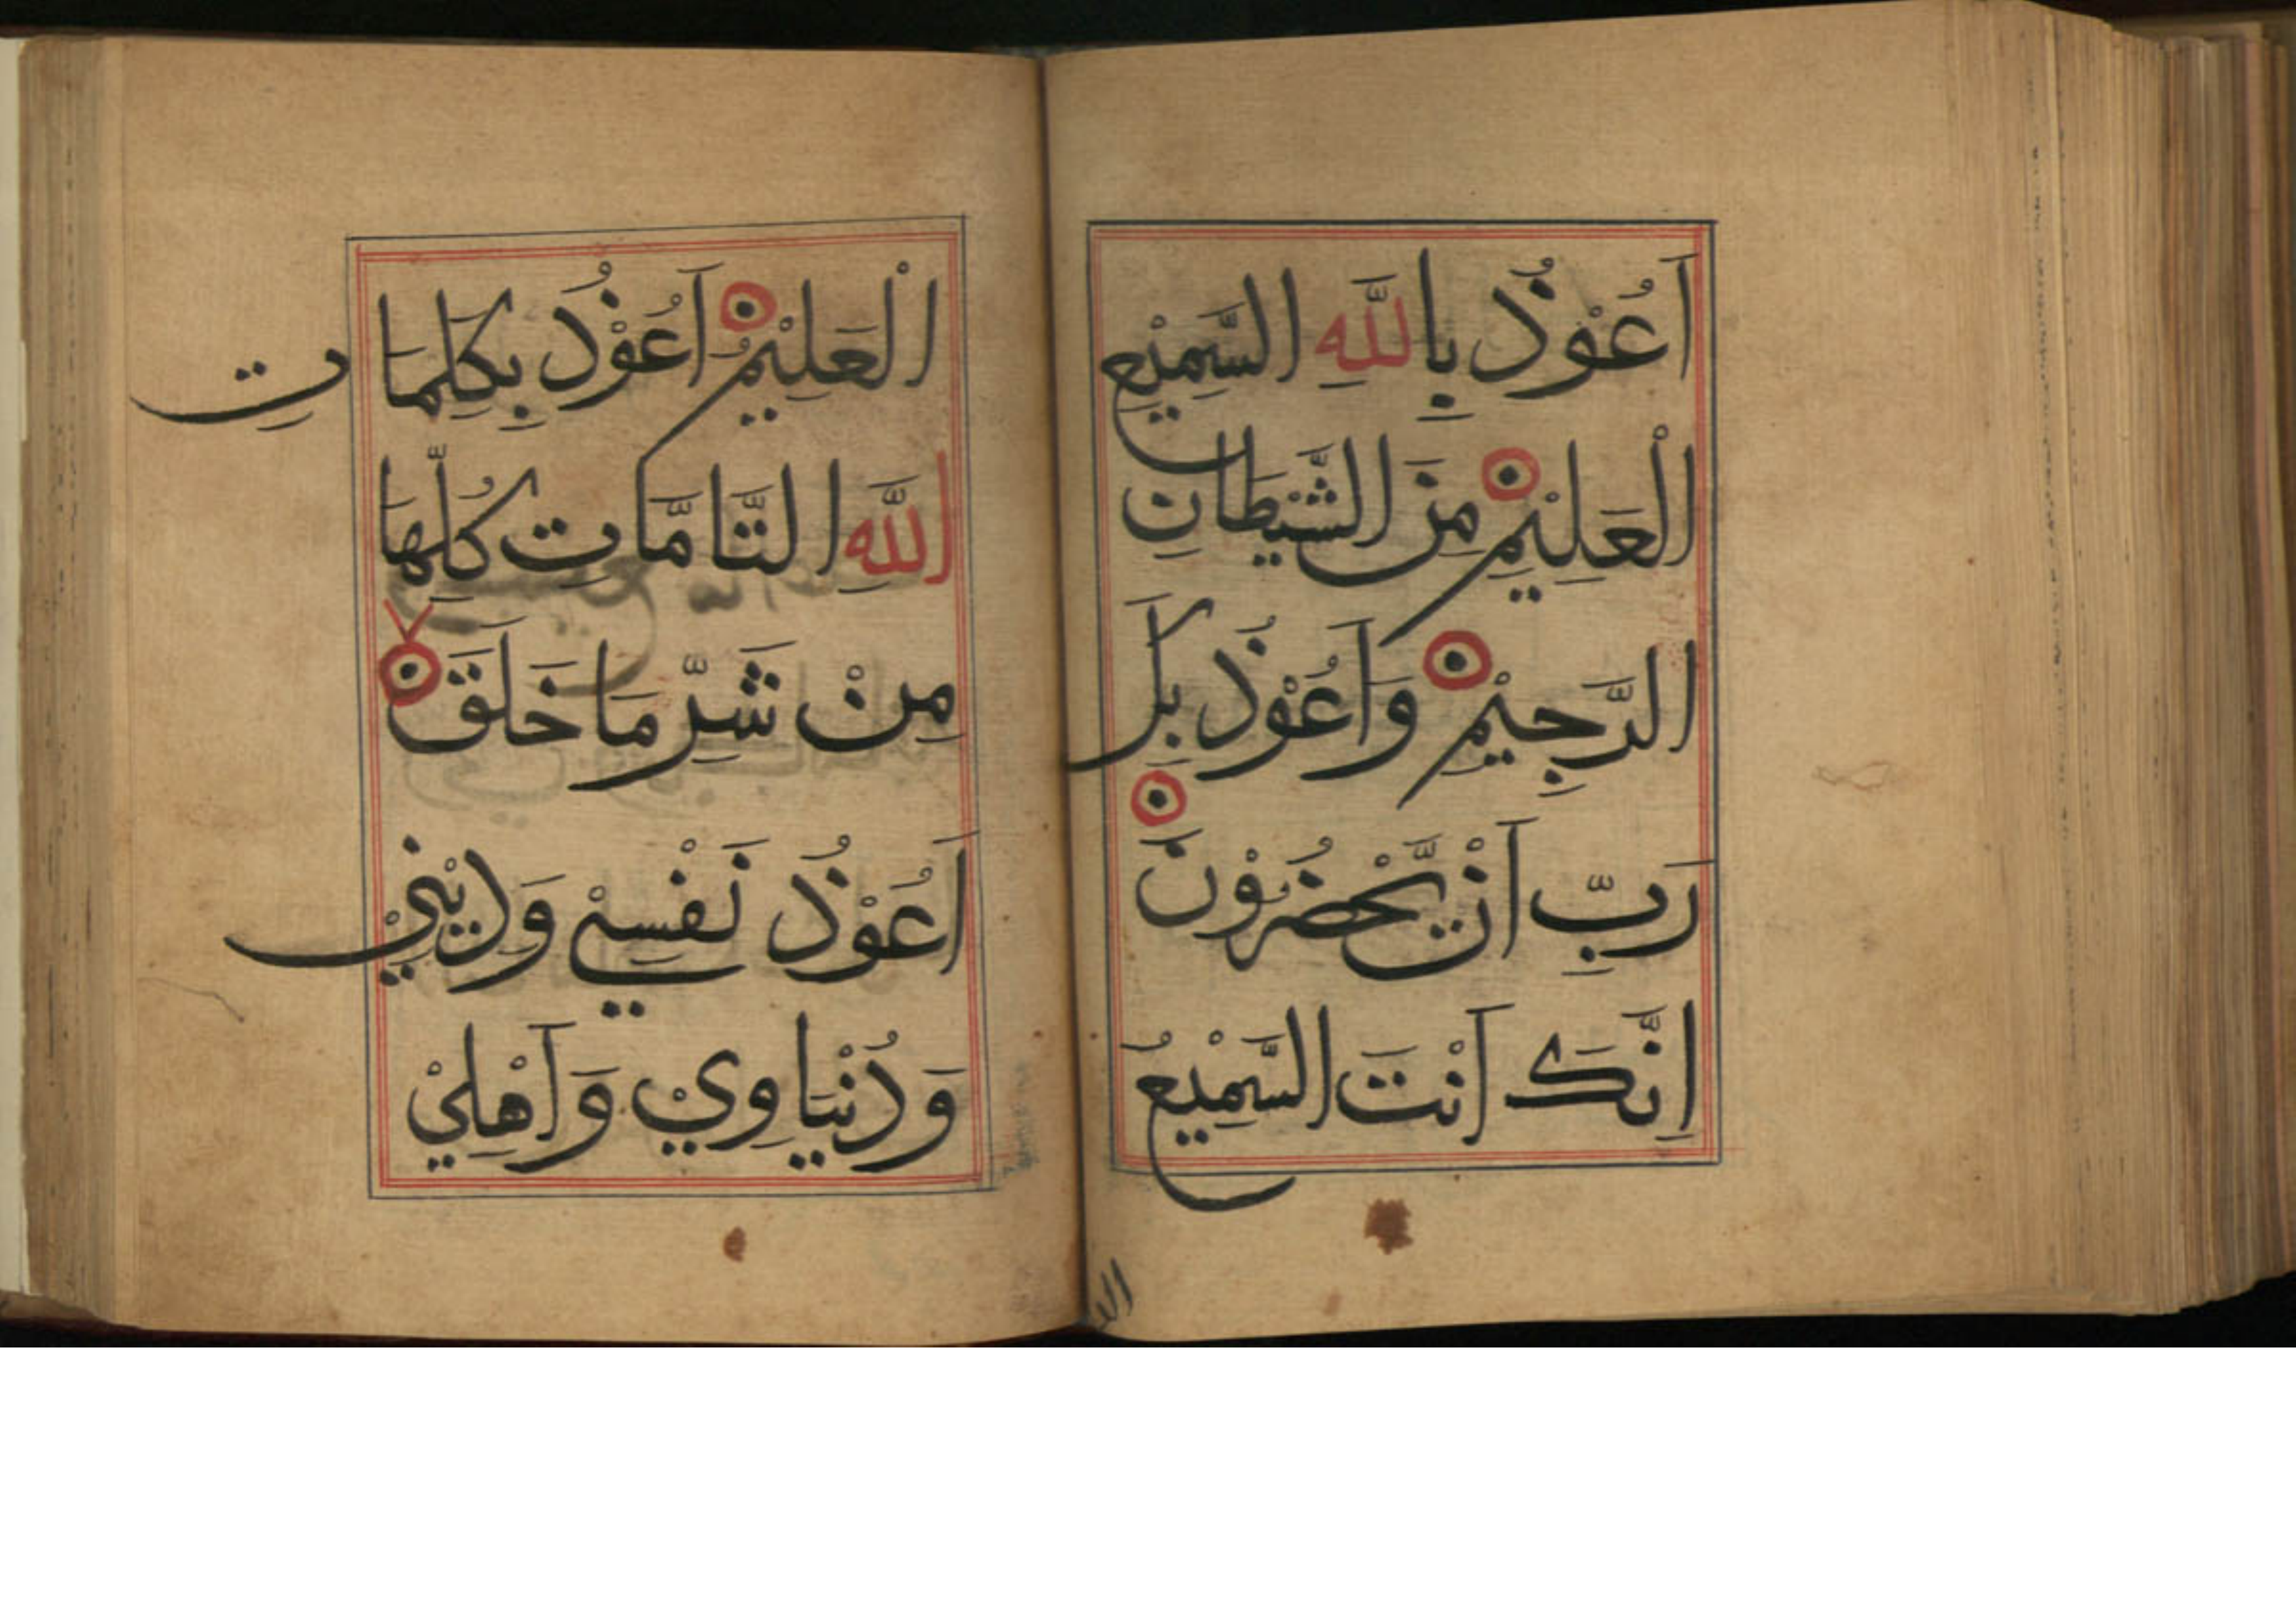 اَعُوْذُ بِاللّٰهِ السَّمِيْعِ
الْعَلِيْمِ مِنَ الشَّيْطَانِ
الرَّجِيْمِ وَاَعُوْذُ بِكَ
رَبِّ اَنْ يَّحْضُرُوْنَ
اِنَّكَ اَنْتَ السَّمِيْعُ
الْعَلِيْمُ اَعُوْذُ بِكَلِمَاتِ
اللّٰهِ التَّامَّاتِ كُلِّهَا
مِنْ شَرِّ مَا خَلَقَ
اَعُوْذُ نَفْسِيْ وَدِيْنِيْ
وَدُنْيَاوِيْ وَاَهْلِيْ